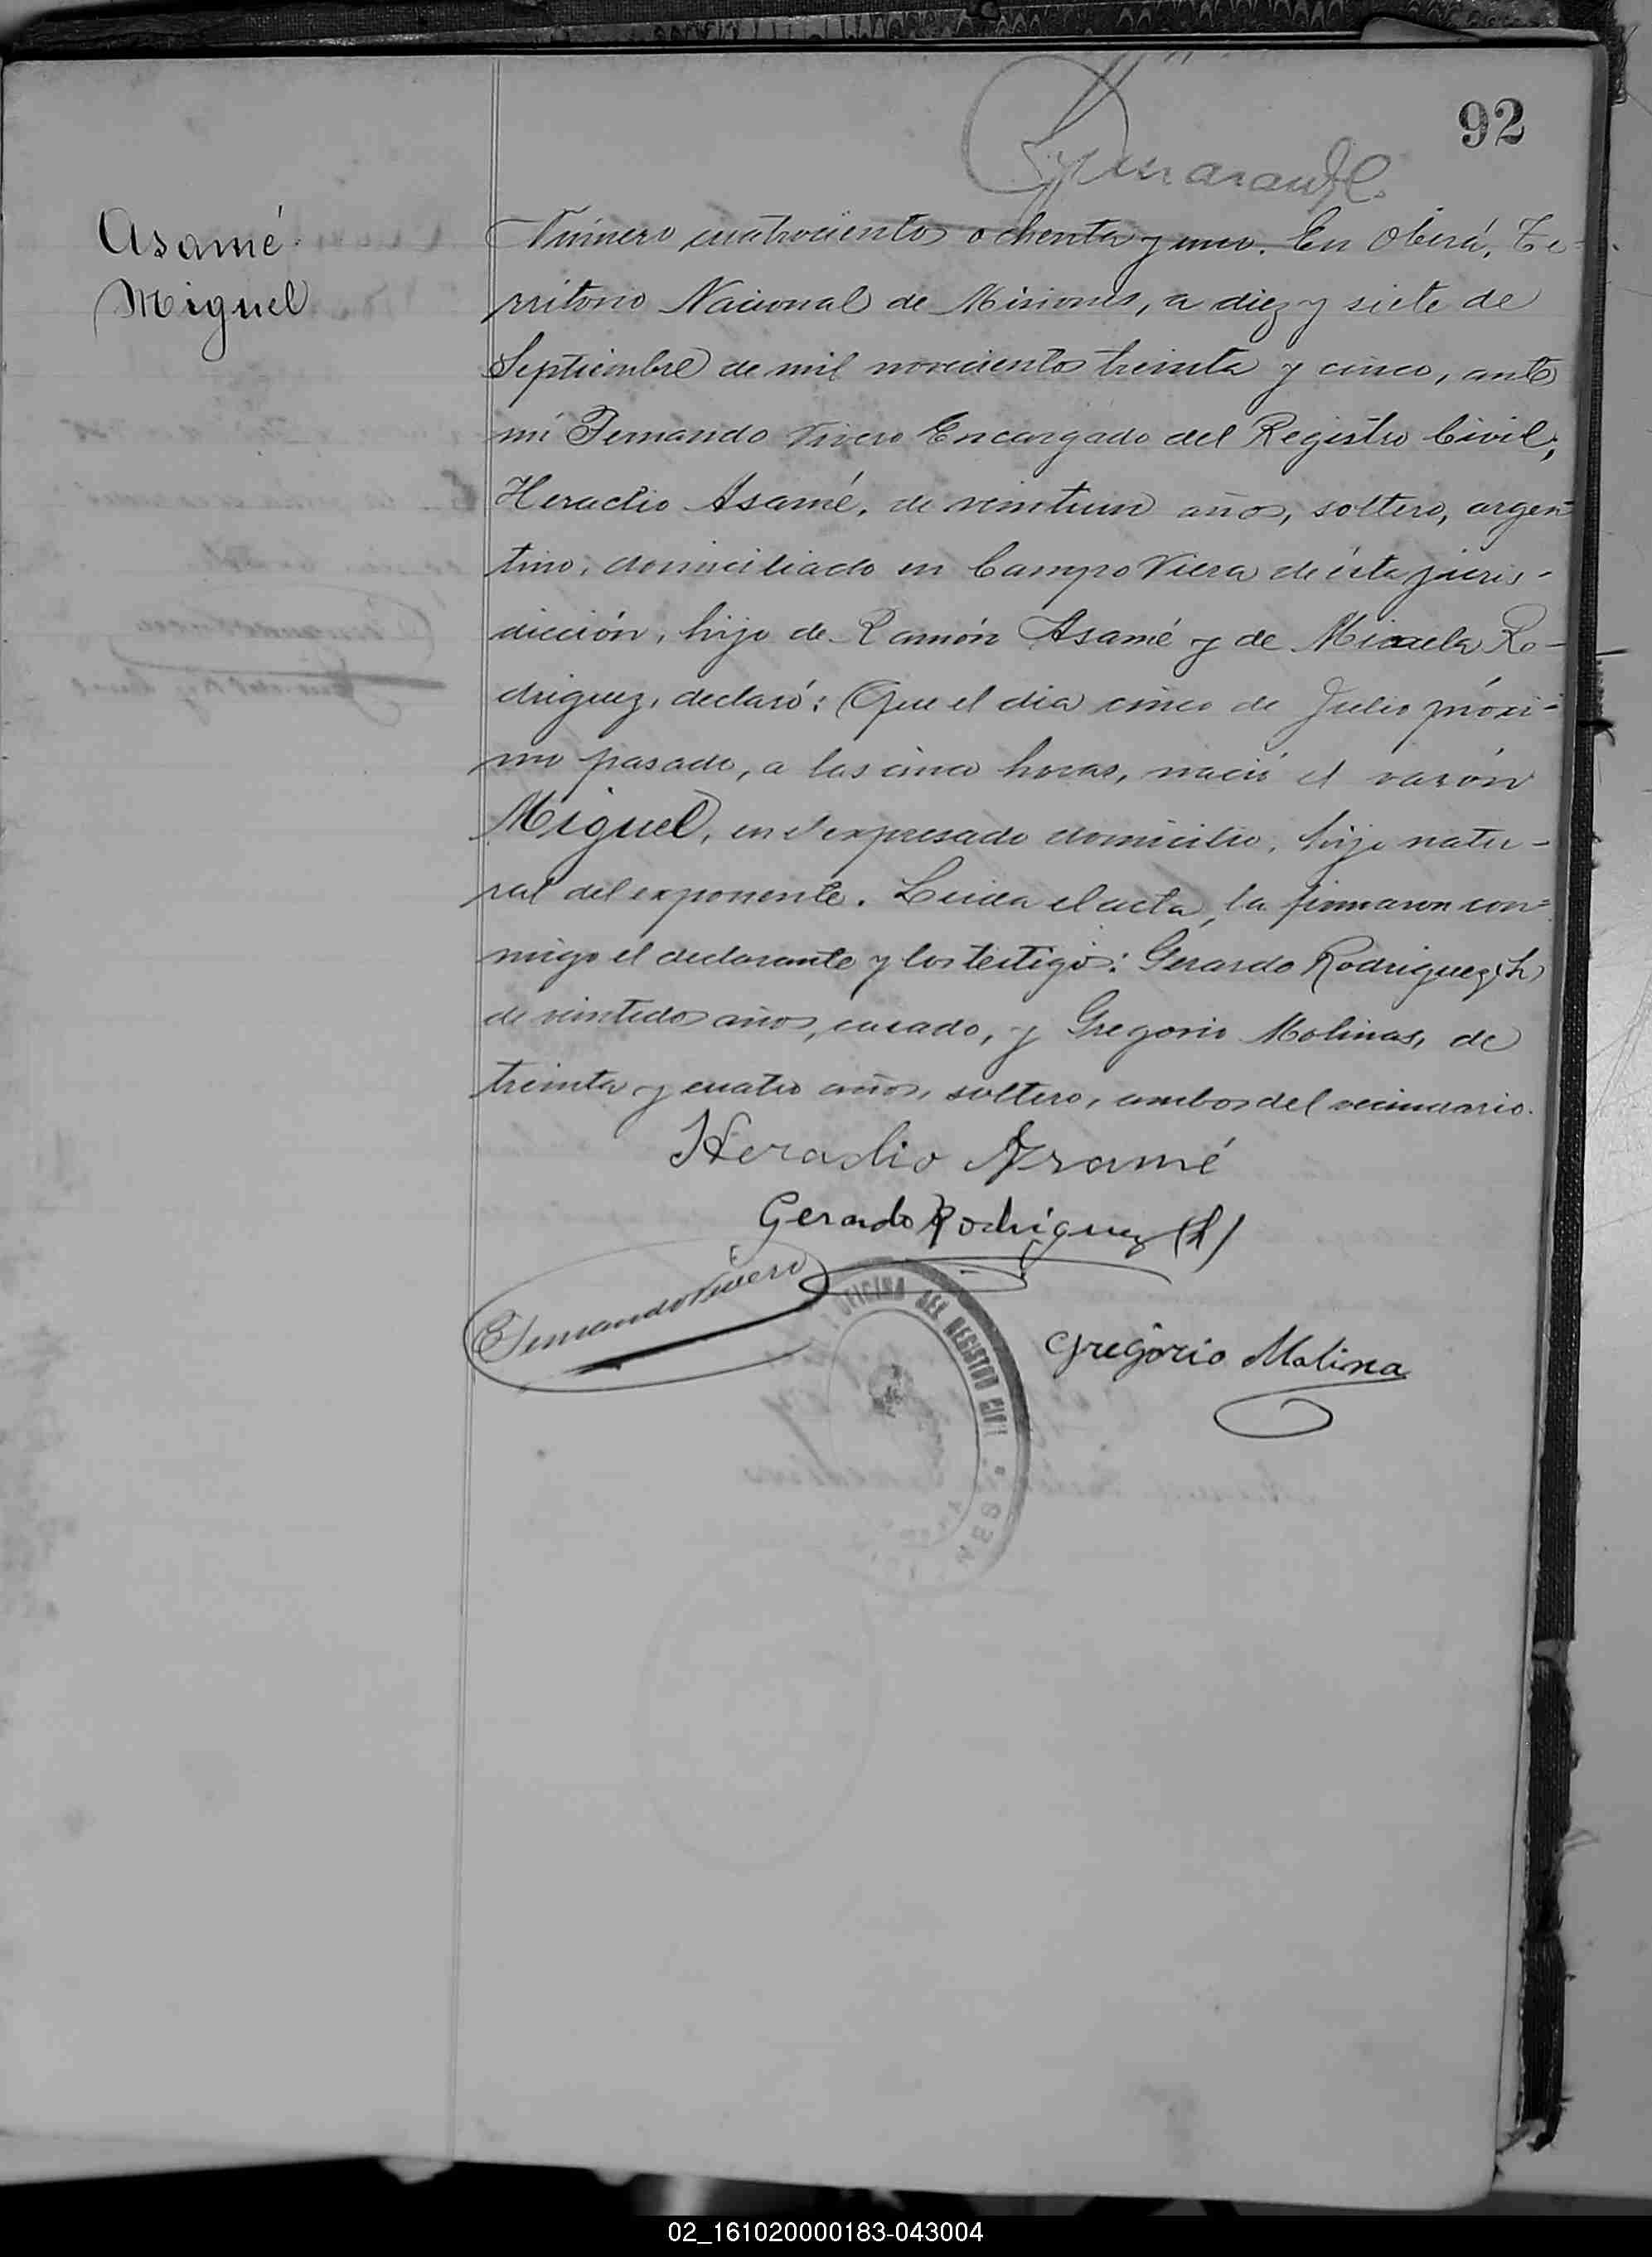 92
Asamé
Miguel
Número cuatrocientos ochenta y uno. En Oberá, Te-
rritorio Nacional de Misiones, a diez y siete de
Septiembre de mil novecientos treinta y cinco, ante
mi Fernando Vivero Encargado del Registro Civil,
Heraclio Asamé, de veintiun años, soltero, argen-
tino, domiciliado en Campo Viera de ésta juris-
dicción, hijo de Ramón Asamé y de Micaela Ro-
driguez, declaró: Que el día cinco de Julio próxi-
mo pasado, a las cinco horas, nació el varón
Miguel, en el expresado domicilio, hijo natu-
ral del exponente. Leida el acta, la firmaron con-
migo el declarante y los testigos: Gerardo Rodriguez (h)
de veintedos años, casado, y Gregorio Molinas, de
treinta y cuatro años, soltero, ambos del vecindario.
Heraclio Asamé
Gerardo Rodriguez (h)
Fernando Vivero
OFICINA DEL REGISTRO CIVIL
Gregorio Molina
02_161020000183-043004